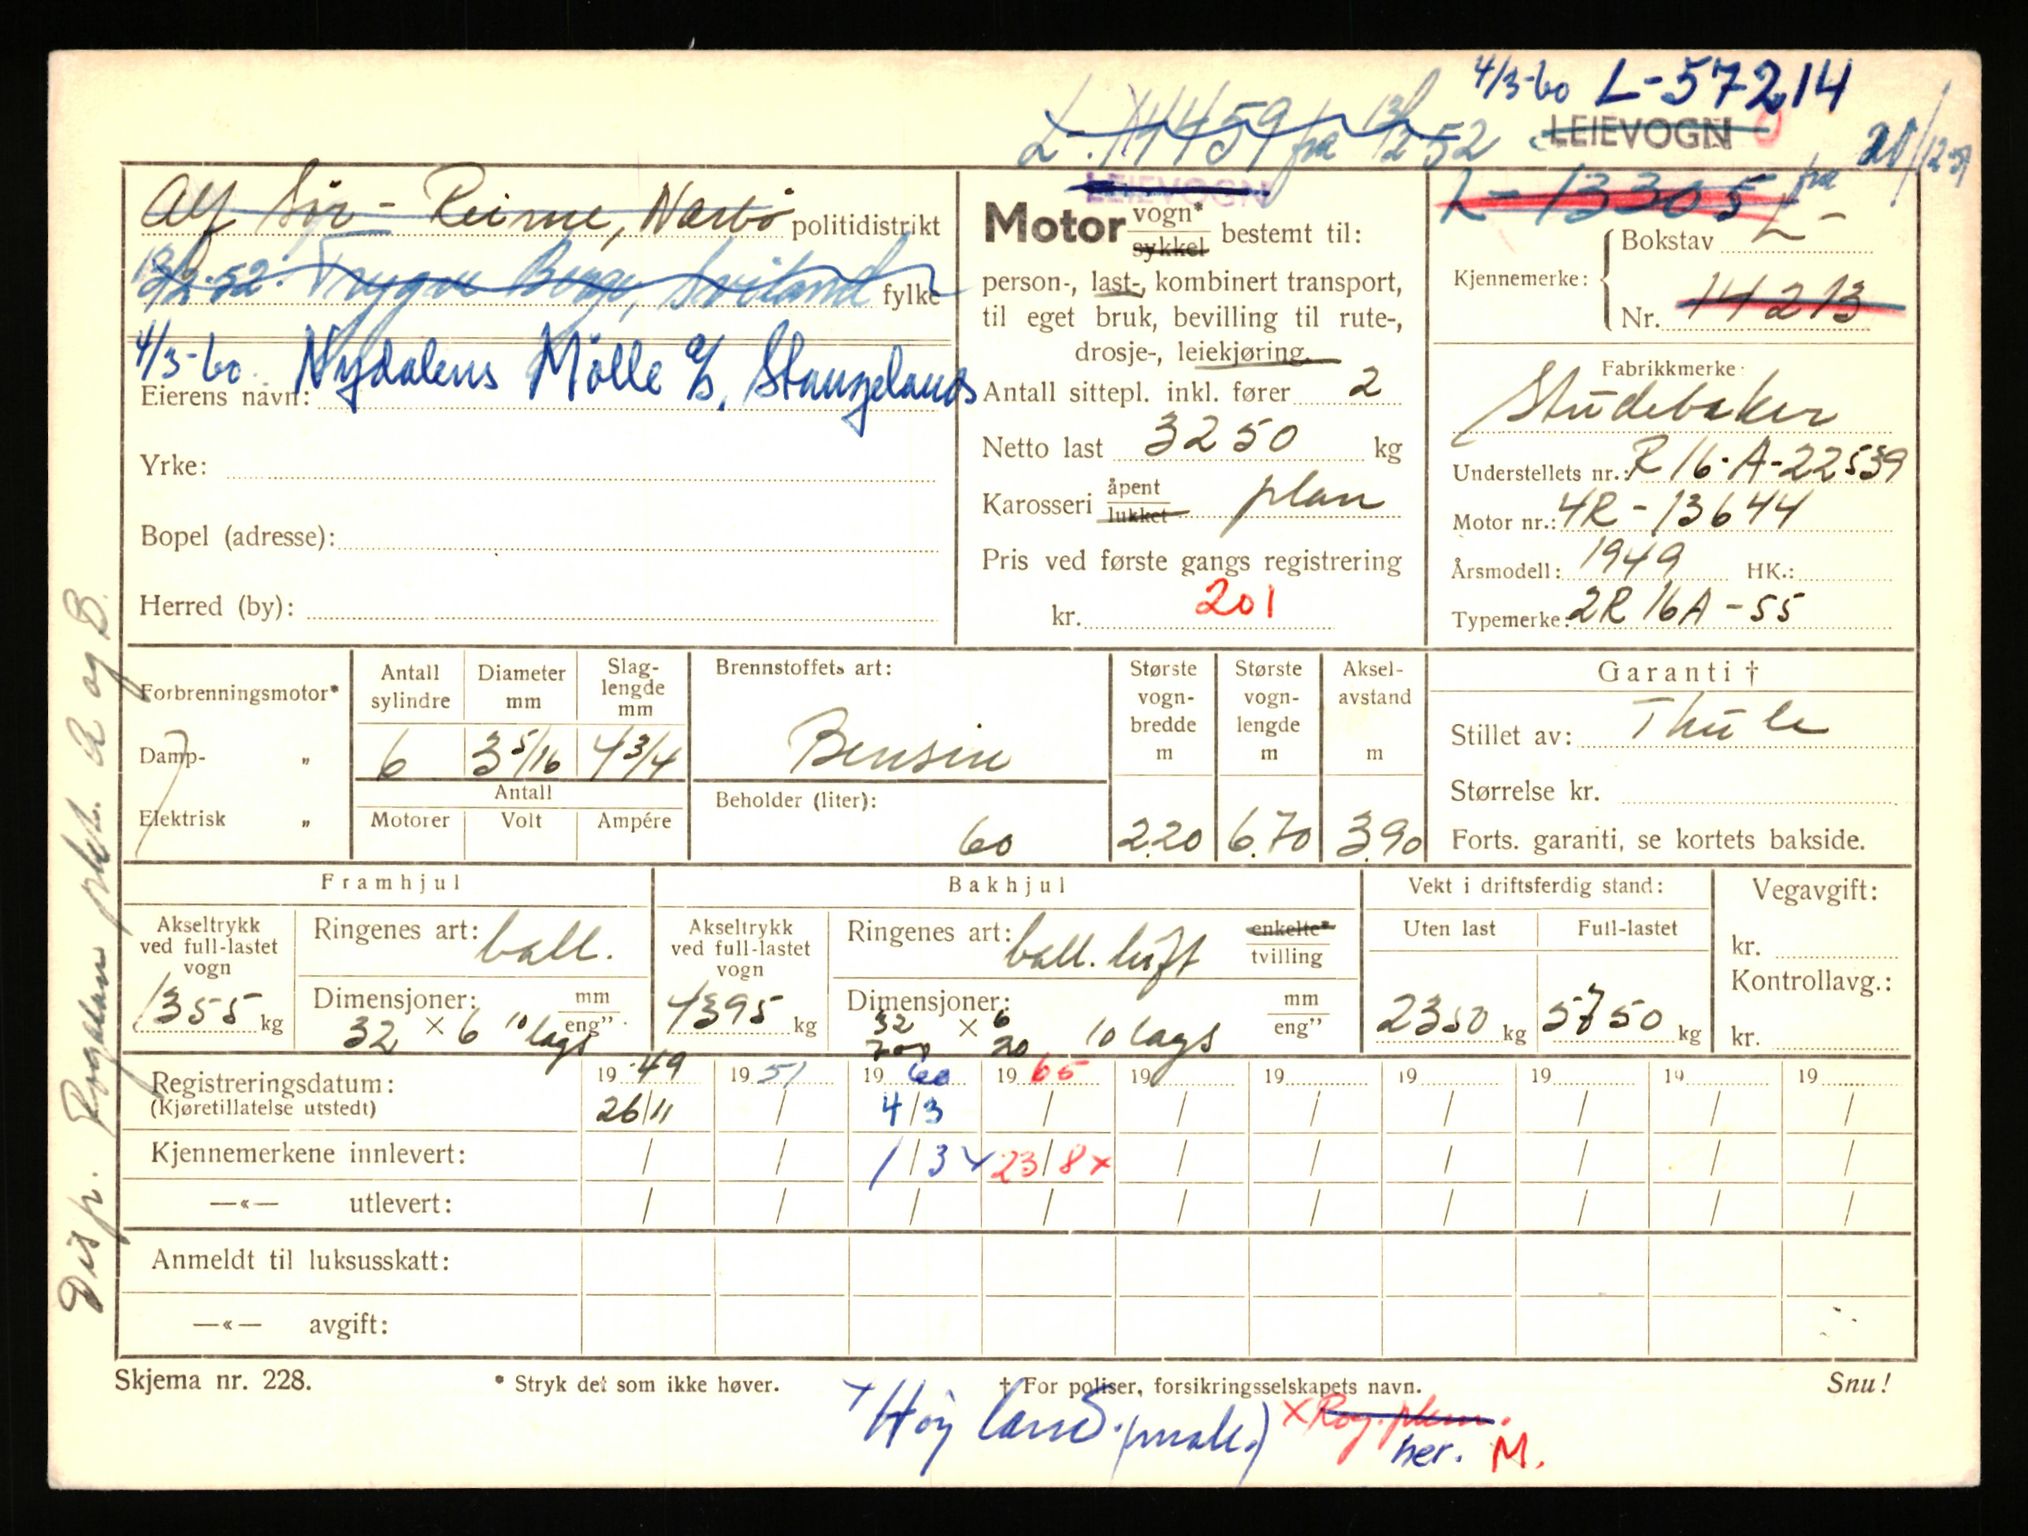 4/3-60 L-57214
L-14459 fra 13/2 52
LEIEVOGN
LEIEVOGN
L-13305 fra 21/12-51
Alf Sør-Reime, Nærbø politidistrikt
13/2-52. Trygve Berge, Soiland fylke
4/3-60. Nydalens Mölle A/S, Stangelands
Eierens navn:
Yrke:
Bopel (adresse):
Herred (by):
Motor vogn* sykkel bestemt til:
person-, last-, kombinert transport,
til eget bruk, bevilling til rute-,
drosje-, leiekjøring.
Antall sittepl. inkl. fører 2
Netto last 3250 kg
Karosseri åpent lukket plan
Pris ved første gangs registrering
kr. 201
Kjennemerke: Bokstav L-
Nr. 14213
Fabrikkmerke
Studebaker
Understellets nr.: R16-A-22539
Motor nr.: 4R-13644
Årsmodell: 1949 HK.:
Typemerke: 2R16A-55
Forbrenningsmotor*
Damp- „
Elektrisk „
Antall sylindre Diameter mm Slaglengde mm
6 3 5/16 4 3/4
Antall
Motorer Volt Ampére
Brennstoffets art:
Bensin
Beholder (liter):
60
Største vognbredde m
2.20
Største vognlengde m
6.70
Akselavstand m
3.90
Garanti †
Stillet av: Thule
Størrelse kr.
Forts. garanti, se kortets bakside.
Framhjul
Akseltrykk ved full-lastet vogn
1355 kg
Ringenes art: ball.
Dimensjoner: mm eng”
32 × 6 10 lags
Bakhjul
Akseltrykk ved full-lastet vogn
4395 kg
Ringenes art: ball. luft enkelte* tvilling
Dimensjoner: mm eng”
32 × 6 10 lags
700 20
Vekt i driftsferdig stand:
Uten last Full-lastet
2350 kg 5750 kg
Vegavgift:
kr.
Kontrollavg.:
kr.
Registreringsdatum: 19 49 19 51 19 60 19 65 19 19 19 19 19 19
(Kjøretillatelse utstedt) 26/11 / 4/3 / / / / / / /
Kjennemerkene innlevert: / / 1/3 × 23/8 × / / / / / /
—«— utlevert: / / / / / / / / / /
Anmeldt til luksusskatt:
—«— avgift:
Skjema nr. 228. * Stryk det som ikke høver. † For poliser, forsikringsselskapets navn. Snu!
× Høyland. (mak.) × Rog. plem.
her. M.
Disp. Rogaland pkt. A og B.